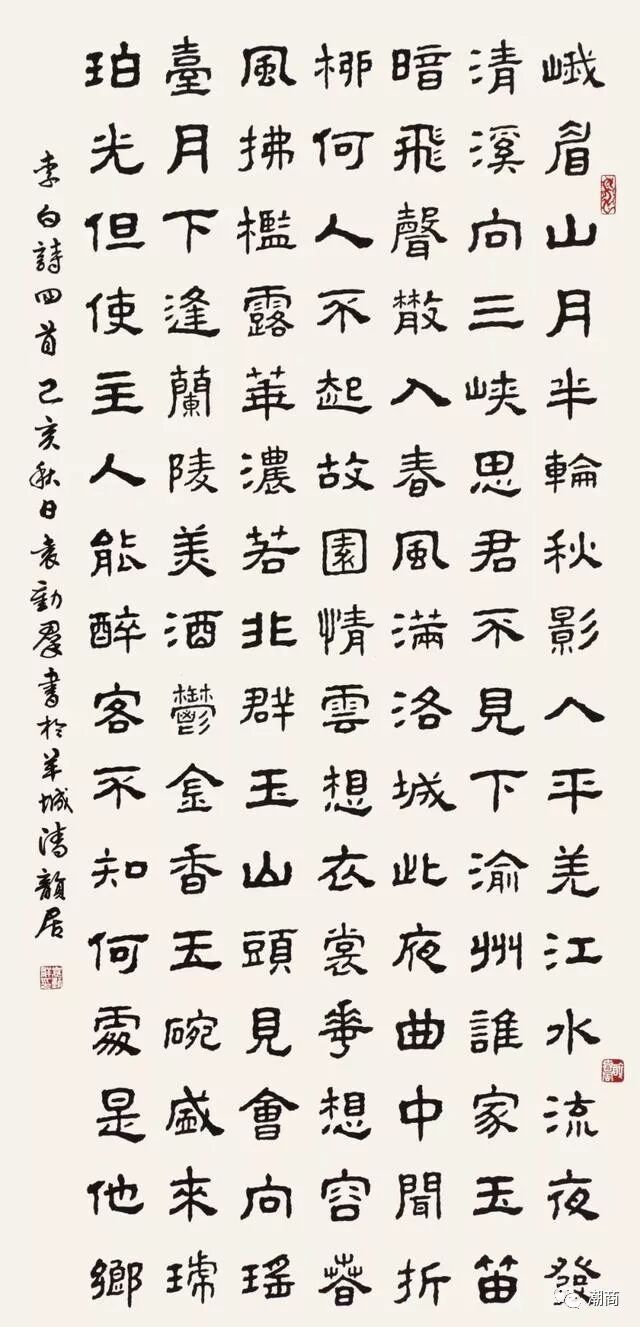 峨眉山月半輪秋影入平羌江水流夜發
清溪向三峽思君不見下渝州誰家玉笛
暗飛聲散入春風滿洛城此夜曲中聞折
柳何人不起故園情雲想衣裳華想容春
風拂檻露華濃若非群玉山頭見會向瑤
臺月下逢蘭陵美酒鬱金香玉碗盛來琥
珀光但使主人能醉客不知何處是他鄉
李白詩四首己亥秋日袁勤羣書於羊城清韻居
潮商